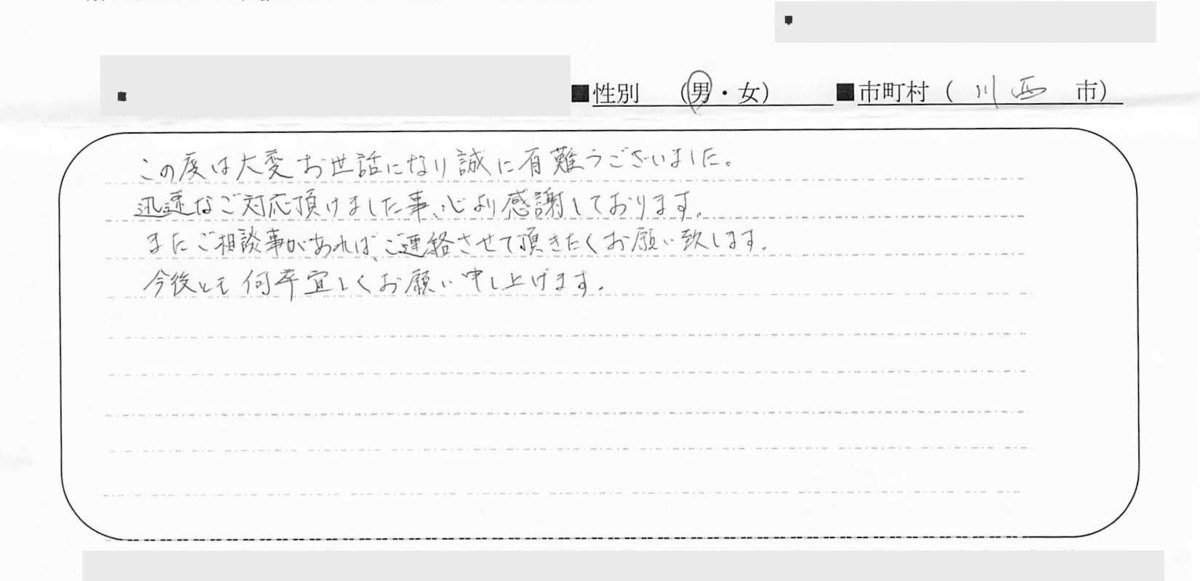 ■性別 (男・女) ■市町村 ( 川西 市)
この度は大変お世話になり誠に有難うございました。
迅速なご対応頂けました事、心より感謝しております。
またご相談事があれば、ご連絡させて頂きたくお願い致します。
今後とも何卒宜しくお願い申し上げます。